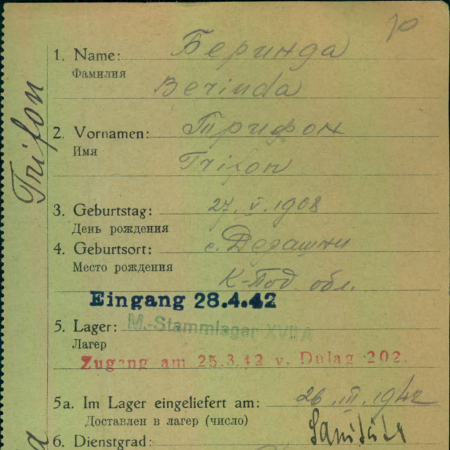 10
1. Name: Беринда
Фамилия
Berinda
2. Vornamen: Трифон
Имя
Trifon
3. Geburtstag: 27. V. 1908
День рождения
4. Geburtsort: с.
Место рождения
К-Под. обл.
Eingang 28.4.42
5. Lager: M.-Stammlager XVII A
Лагер
Zugang am 25.3.42 v. Dulag 202.
5a. Im Lager eingeliefert am: 26. III. 1942
Доставлен в лагер (число)
6. Dienstgrad: Sanitäter
Trifon